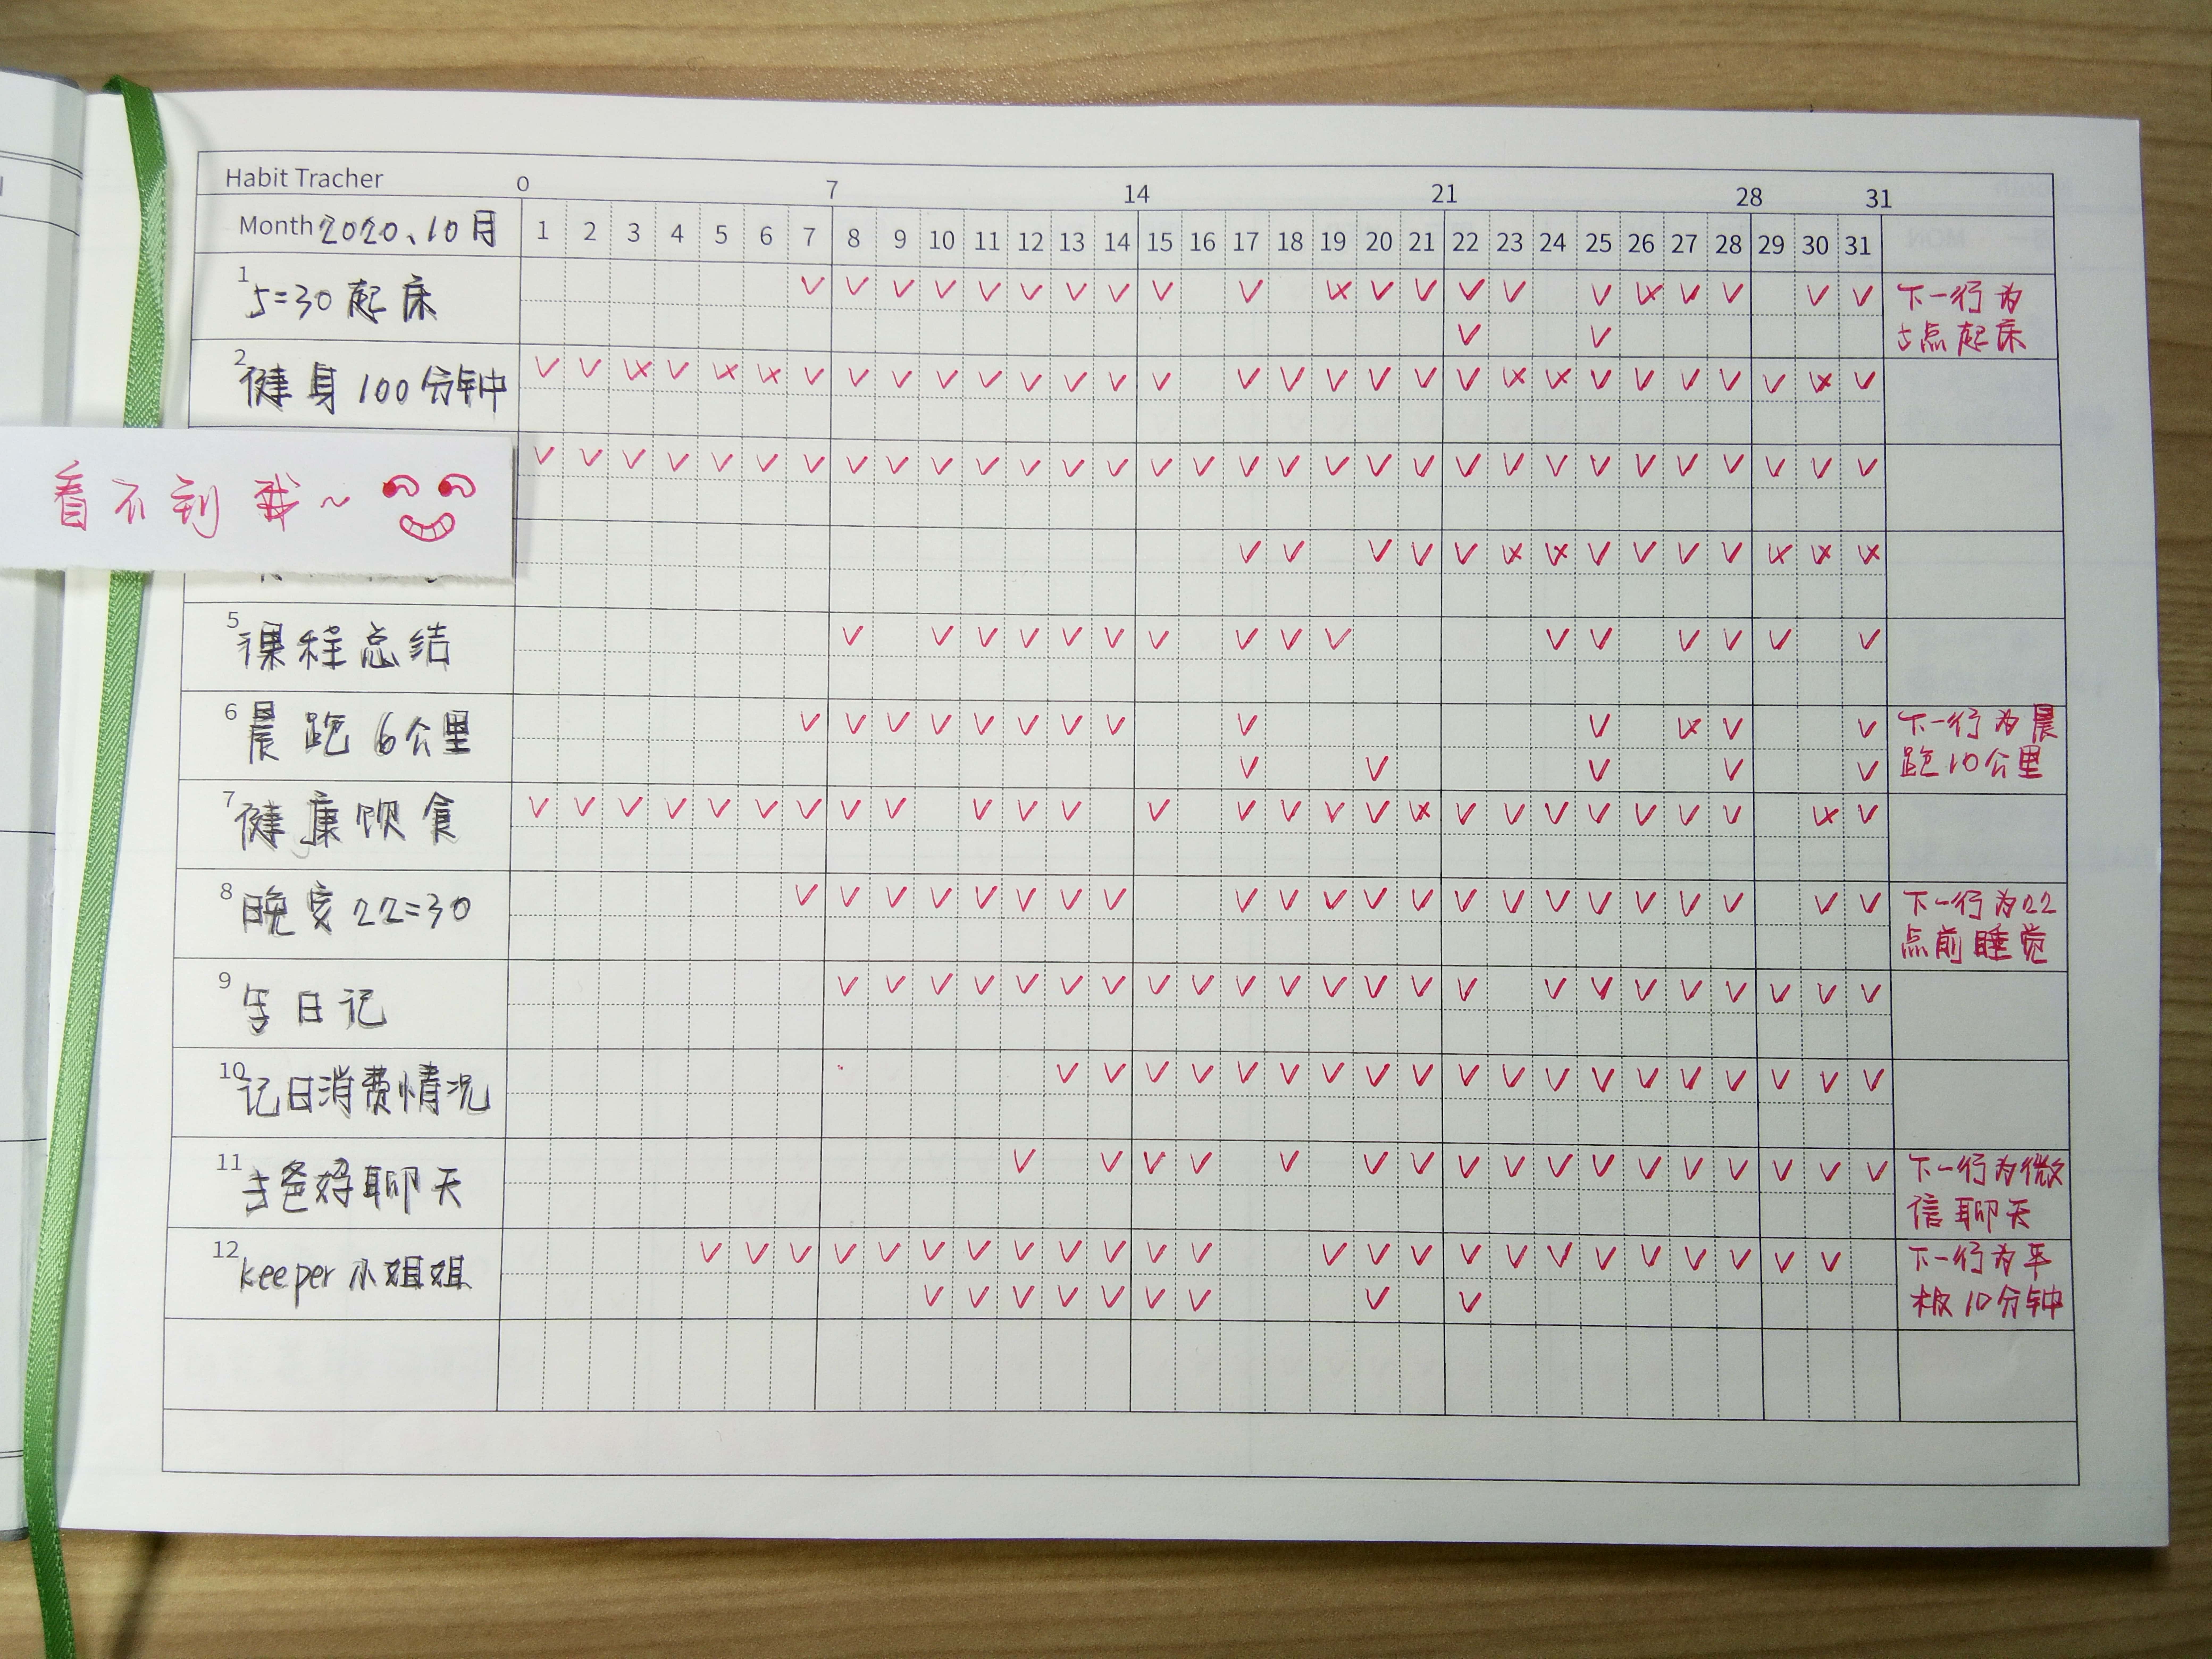 Habit Tracher
0 7 14 21 28 31
Month 2020、10月
1 2 3 4 5 6 7 8 9 10 11 12 13 14 15 16 17 18 19 20 21 22 23 24 25 26 27 28 29 30 31
1 5:30起床
下一行为
5点起床
2 健身100分钟
看不到我~
5 课程总结
6 晨跑6公里
下一行为晨
跑10公里
7 健康饮食
8 晚安22:30
下一行为22
点前睡觉
9 写日记
10 记日消费情况
11 与爸妈聊天
下一行为微
信聊天
12 keeper小姐姐
下一行为平
板10分钟